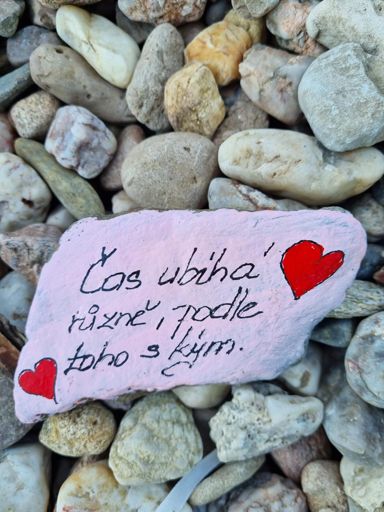 Čas ubíhá
různě, podle
toho s kým.